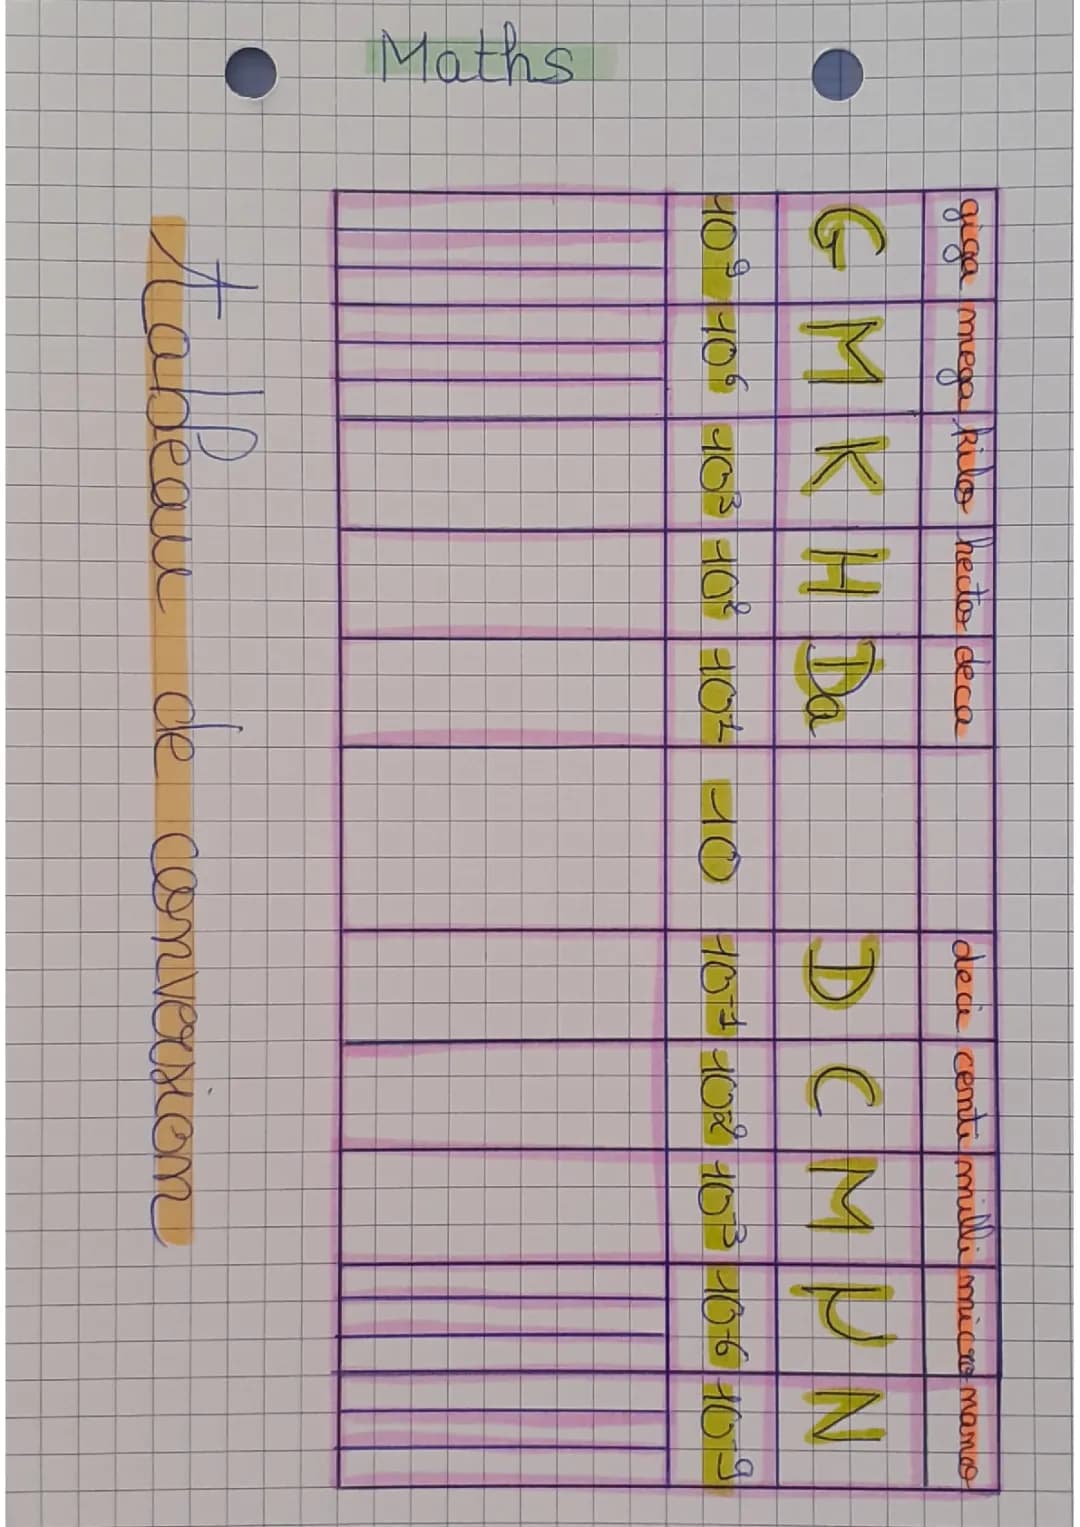 Maths
tableau de conversion
giga mega kilo hecto deca deci centi milli micro nano
G M K H Da D C M µ N
10⁹ 10⁶ 10³ 10² 10¹ 10 10⁻¹ 10² 10⁻³ 10⁻⁶ 10⁻⁹